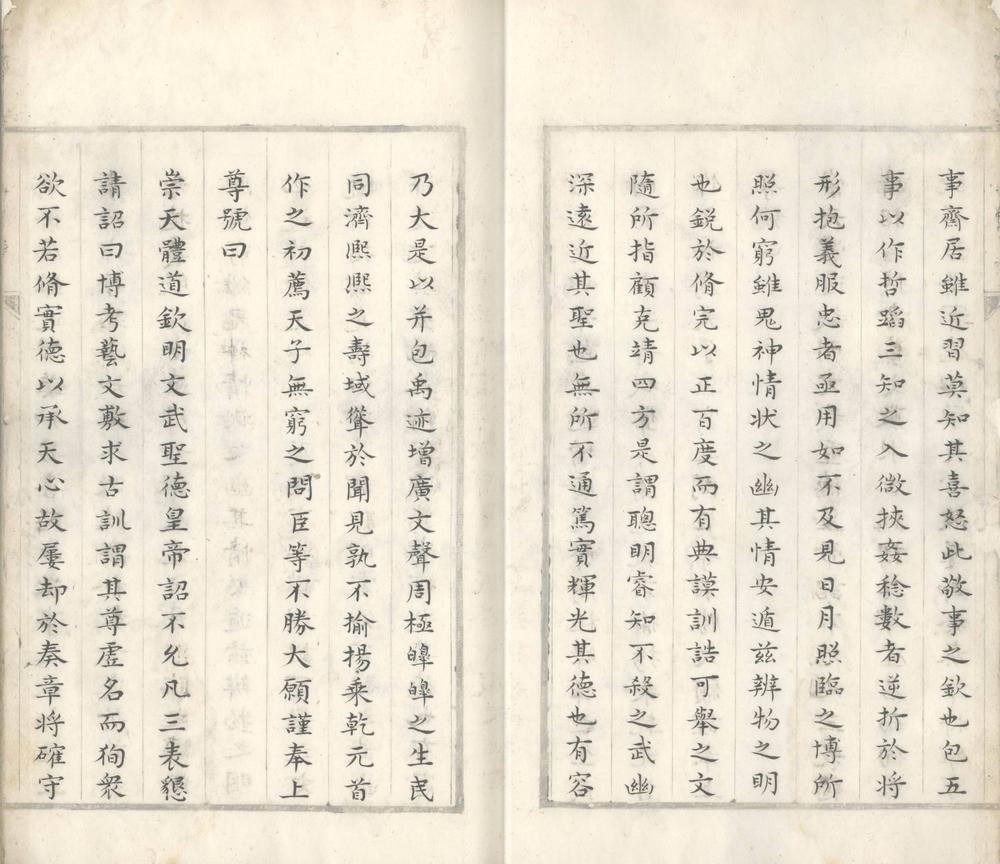 事齋居雖近習莫知其喜怒此敬事之欽也包五
事以作哲蹈三知之入微挾姦稔數者逆折於將
形抱義服忠者亟用如不及見日月照臨之博所
照何窮雖鬼神情状之幽其情安遁兹辨物之明
也鋭於脩完以正百度而有典謨訓誥可舉之文
隨所指顧克靖四方是謂聰明睿知不殺之武幽
深遠近其聖也無所不通篤實輝光其德也有容
乃大是以并包禹迹增廣文聲周極皥皥之生民
同濟熈熈之壽域聳於聞見孰不揄揚乘乾元首
作之初薦天子無窮之問臣等不勝大願謹奉上
尊號曰
崇天體道欽明文武聖德皇帝詔不允凡三表懇
請詔曰博考藝文敷求古訓謂其尊虛名而徇衆
欲不若脩實德以承天心故屢却於奏章將確守